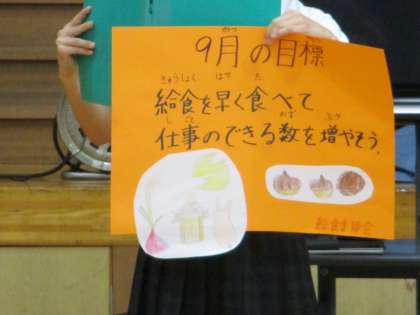 9月の目標
給食を早く食べて
仕事のできる数を増やそう.
給食委員会